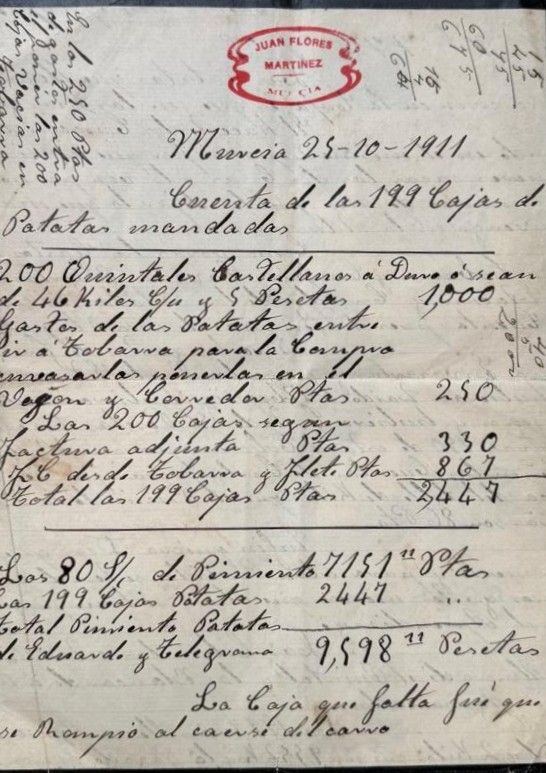 JUAN FLORES
MARTINEZ
MURCIA
En los 250 Ptas
de gastos entra
el poner las 200
Cajas Vacias en
Tobarra
Murcia 25-10-1911
Cuenta de las 199 Cajas de
Patatas mandadas
200 Quintales Castellanos á Duro ó sean
de 46 Kilos C/u y 5 Pesetas 1,000
Gastos de las Patatas entre
ir á Tobarra para la Compra
envasarlas ponerlas en el
Vagon y Corredor Ptas 250
Las 200 Cajas segun
Factura adjunta Ptas 330
FC desde Tobarra y Flete Ptas 867
Total las 199 Cajas Ptas 2447
Los 80 S/ de Pimiento 7151 " Ptas
Las 199 Cajas Patatas 2447 "
Total Pimiento Patatas
de Eduardo y Telegrama 9,598 " Pesetas
La Caja que falta fué que
se Rompio al caerse del carro